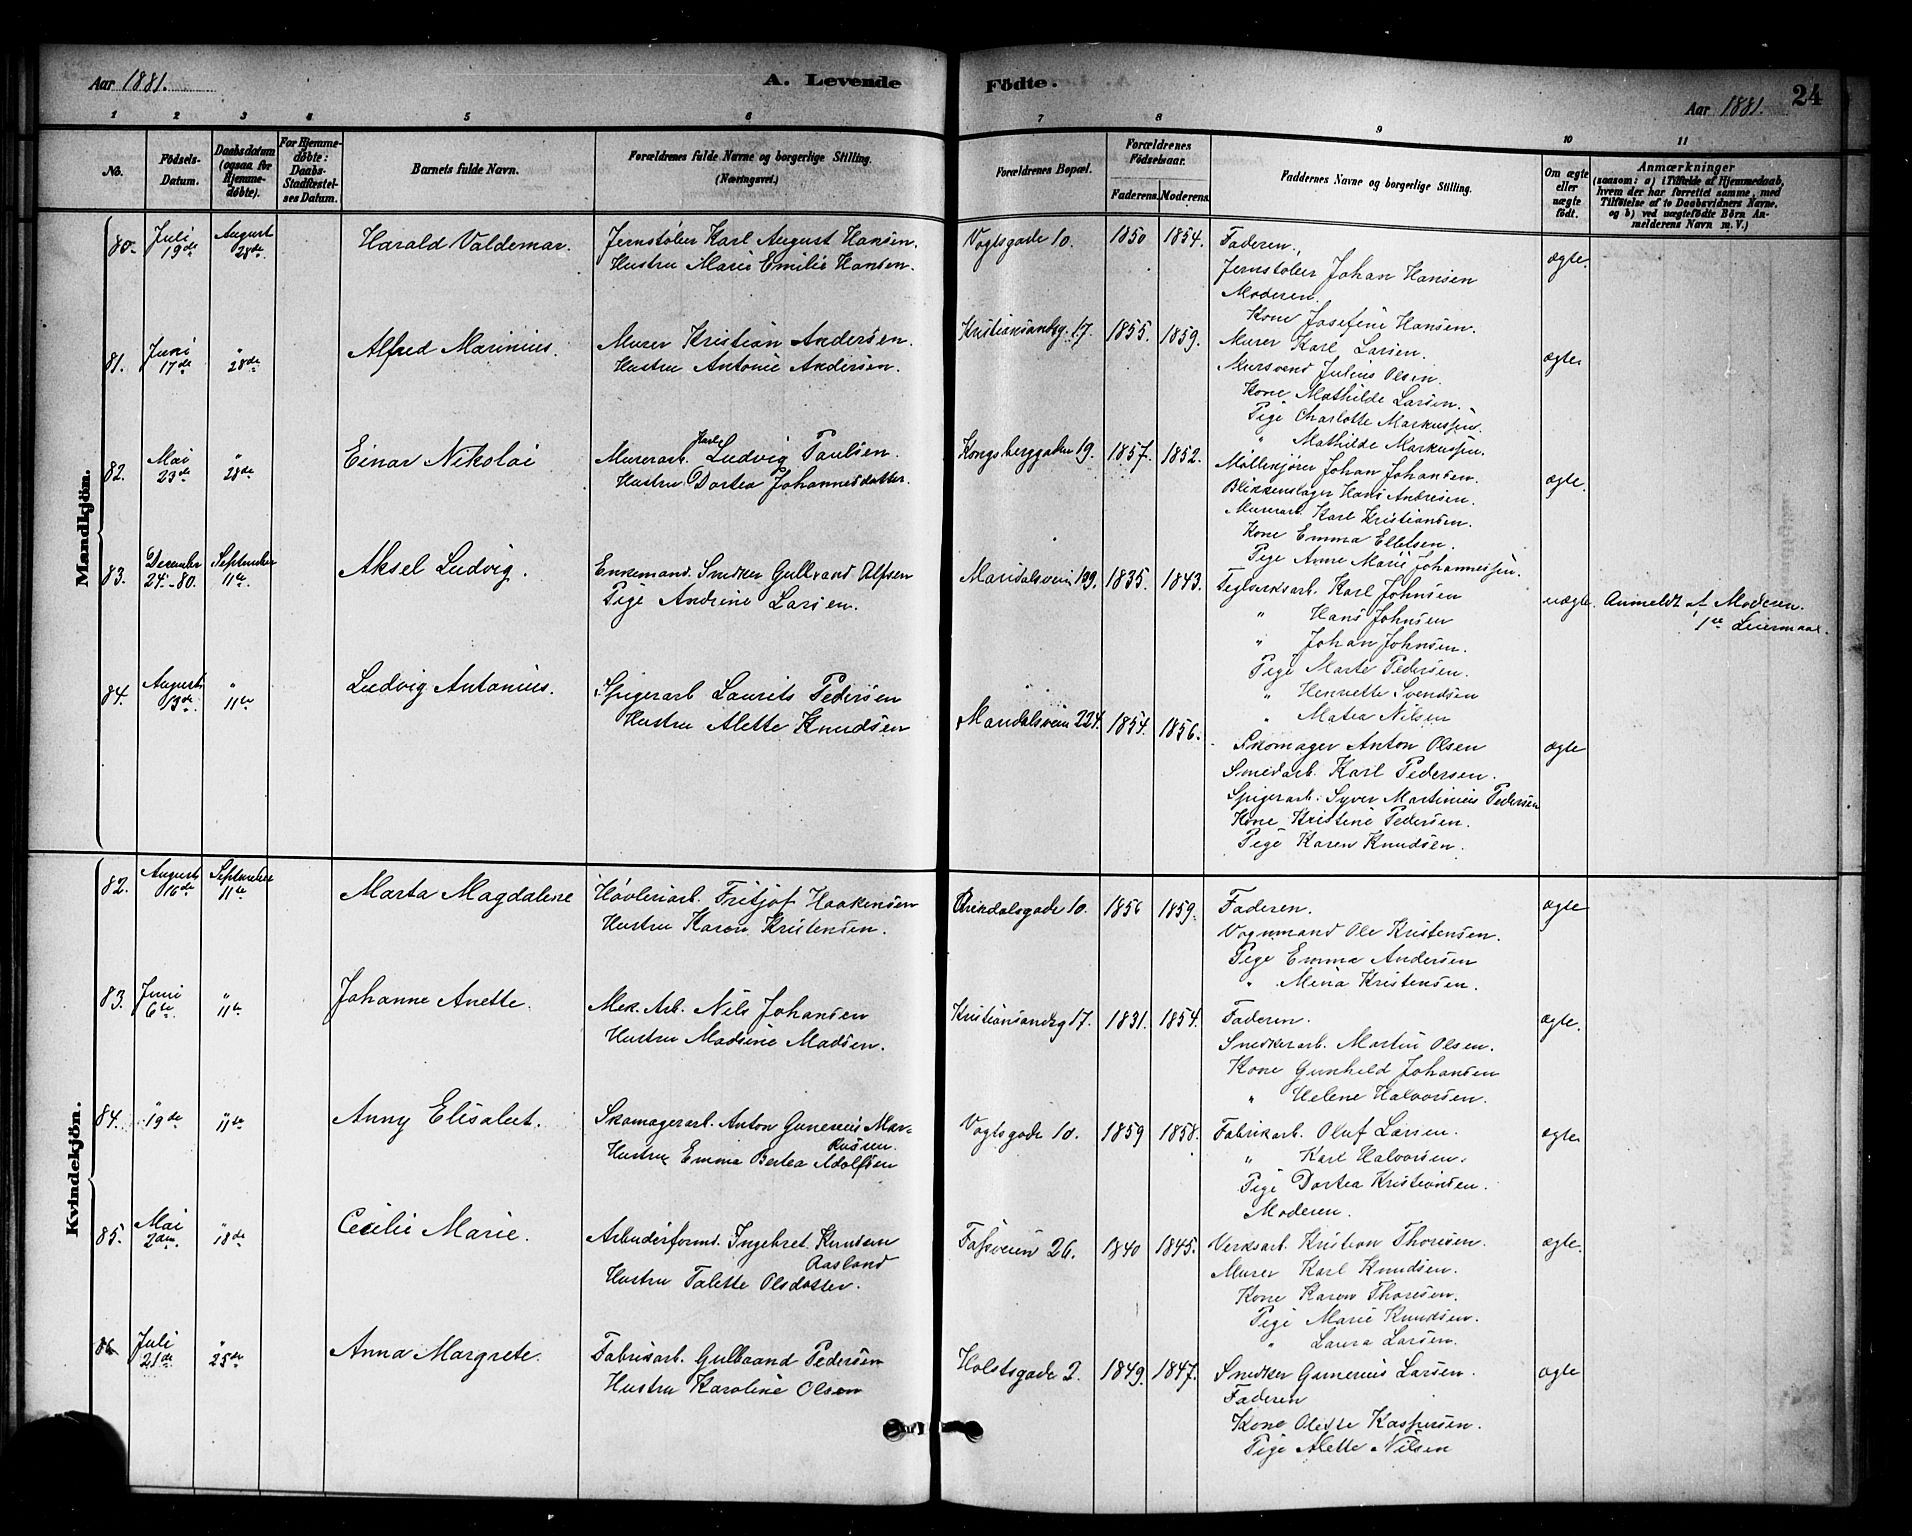 Aar 1881.
A. Levende
Födte.
Aar 1881.
24
1 2 3 4 5 6 7 8 9 10 11
No.
Födsels-Datum.
Daabsdatum (ogsaa for Hjemme-døbte).
For Hjemme-døbte: Daabs-Stadfæstel-ses Datum.
Barnets fulde Navn.
Forældrenes fulde Navne og borgerlige Stilling. (Næringsvei.)
Forældrenes Bopæl.
Forældrenes Födselsaar.
Faderens. Moderens.
Faddernes Navne og borgerlige Stilling.
Om ægte eller uægte födt.
Anmærkninger
(saasom: a) i Tilfælde af Hjemmedaab,
hvem der har forrettet samme, med
Tilføielse af to Daabsvidners Navne,
og b) ved uægtefødte Börn An-
melderens Navn m. V.)
Mandkjön.
80. Juli 19de August 28de Harald Valdemar. Jernstøber Karl August Hansen. Vogtsgade 10. 1850 1854. Faderen. ægte.
Hustru Marie Emilie Hansen. Jernstøber Johan Hansen
Moderen.
Kone Josefine Hansen.
81. Juni 17de " 28de Alfred Marinius. Murer Kristian Andersen. Kristiansandsg. 17. 1855. 1859. Murer Karl Larsen. ægte
Hustru Antonie Andersen. Mursvend Julius Olsen.
Kone Mathilde Larsen.
Pige Charlotte Markussen.
" Mathilde Markussen.
82. Mai 23de " 28de Einar Nikolai Murerarb. Karl Ludvig Paulsen. Kongsberggaden 19. 1857. 1852. Møllekjører Johan Johansen. ægte.
Hustru Dortea Johannesdatter. Blikkenslager Hans Andresen.
Murerarb. Karl Kristiansen.
Kone Emma Ellefsen.
Pige Anne Marie Johannessen.
83. December 24.-80. September 11te Aksel Ludvig. Enkemand. Snedker Gulbrand Alfsen Maridalsveien 199. 1835. 1843. Teglverksarb. Karl Johnsen uægte. Anmeldt af Moderen.
Pige Andrine Larsen. " Hans Johnsen 1ste Leiermaal.
" Johan Johnsen.
Pige Marte Pedersen.
" Henriette Svendsen
" Matea Nilsen
84. August 13de " 11te Ludvig Antonius. Spigerarb Laurits Pedersen Maridalsveien 224. 1854. 1856. Skomager Anton Olsen ægte
Hustru Alette Knudsen Smedarb. Karl Pedersen.
Spigerarb. Syver Martinius Pedersen
Kone Kristine Pedersen.
Pige Karen Knudsen.
Kvindekjön.
82. August 16de September 11te Marta Magdalene Høvleriarb. Fritjof Haakensen Birkdalsgade 10. 1856 1859. Faderen. ægte
Hustru Karen Kristensen. Vognmand Ole Kristensen.
Pige Emma Andersen
" Mina Kristensen.
83. Juni 6te " 11te Johanne Anette. Mek. Arb. Nils Johansen Kristiansandsg 17. 1831. 1854. Faderen. ægte.
Hustru Madsine Madsen. Snedkerarb. Martin Olsen.
Kone Gunhild Johansen
" Helene Halvorsen.
84. " 19de " 11te Anny Elisabet. Skomagerarb. Anton Gunerius Mar- Vogtsgade 10. 1859 1858. Fabrikarb. Oluf Larsen. ægte
kusen. " Karl Halvorsen.
Hustru Emma Bertea Adolfsen Pige Dortea Kristiansen.
Moderen.
85. Mai 2den " 18de Cecilie Marie. Arbeiderformd. Ingebret Knudsen Fossveien 26. 1840 1845. Verksarb. Kristian Thoresen. ægte.
Aasland Murer Karl Knudsen.
Hustru Talette Olsdatter. Kone Karen Thoresen.
Pige Marie Knudsen.
" Laura Larsen.
86 Juli 21de " 25de Anna Margrete. Fabrikarb. Gulbrand Pedersen Holstsgade 2. 1849. 1847. Snedker Gunerius Larsen. ægte
Hustru Karoline Olsen Faderen
Kone Olette Kaspersen.
Pige Alette Nilsen